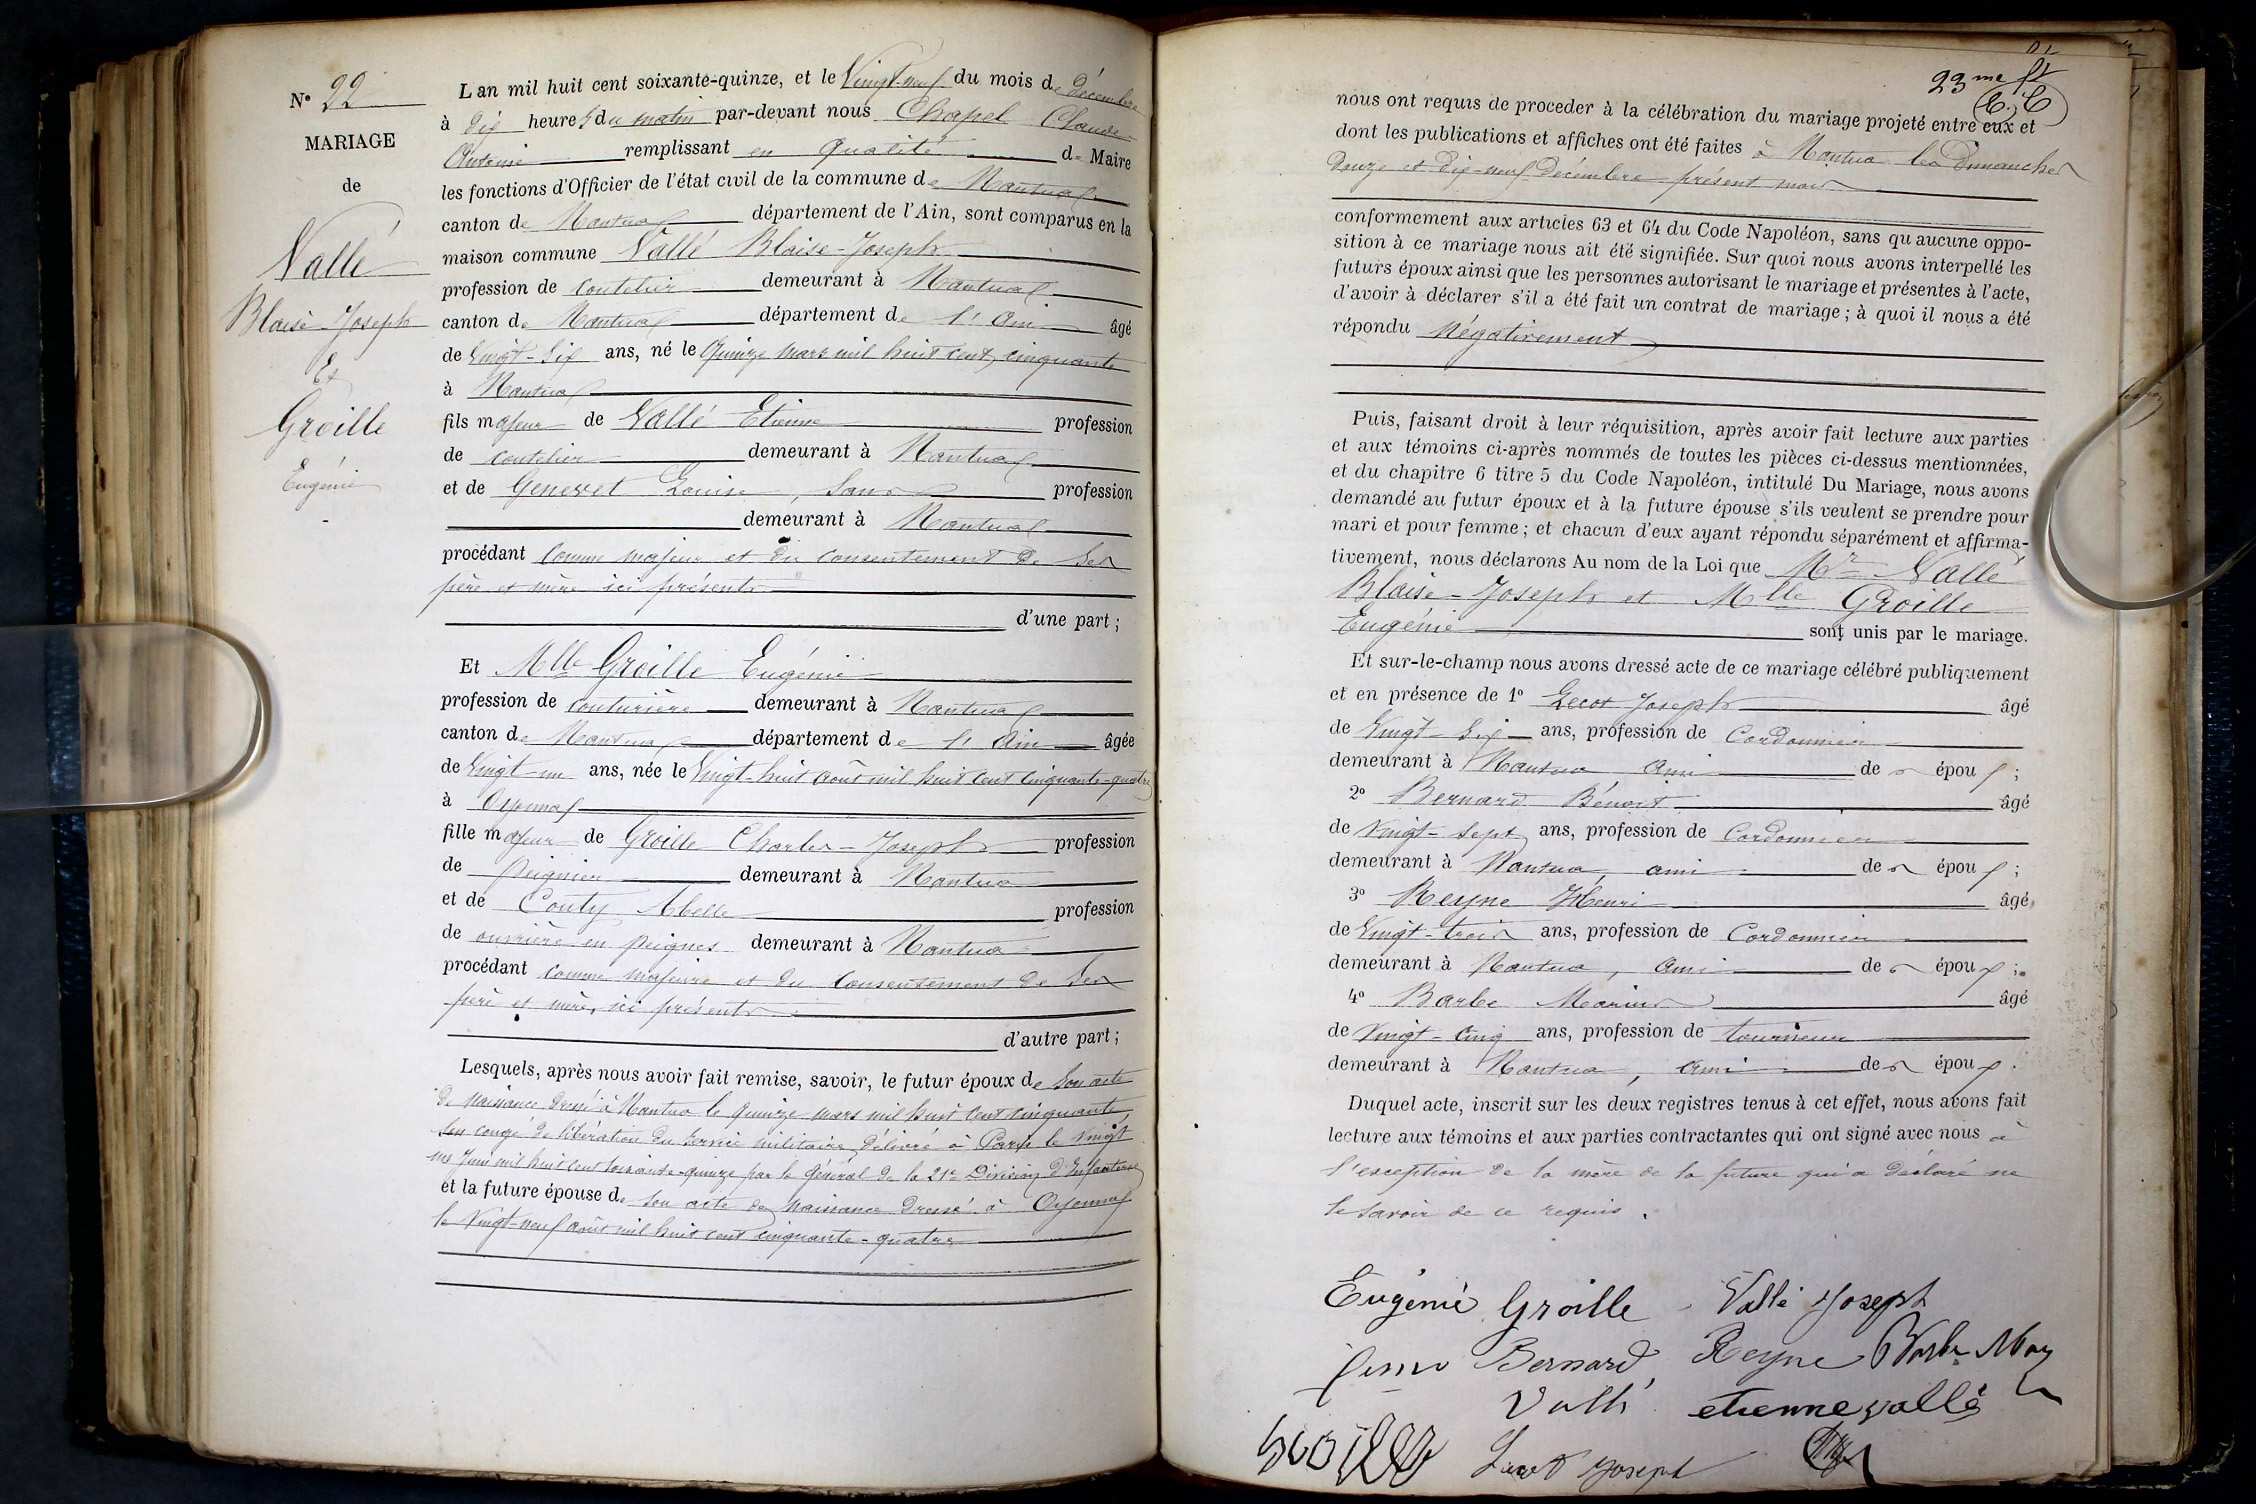 N° 22
MARIAGE
de
Vallé
Blaise-Joseph
Et
Groille
Eugénie
L'an mil huit cent soixante-quinze, et le Vingt-neuf du mois de décembre
à dix heures du matin par-devant nous Chapel Claude
Antoine remplissant en qualité de Maire
les fonctions d'Officier de l'état civil de la commune de Nantua
canton de Nantua département de l'Ain, sont comparus en la
maison commune Vallé Blaise-Joseph
profession de coutelier demeurant à Nantua
canton de Nantua département de l'Ain âgé
de Vingt-six ans, né le Quinze mars mil huit cent cinquante
à Nantua
fils majeur de Vallé Etienne profession
de coutelier demeurant à Nantua
et de Genevet Louise, sans profession
demeurant à Nantua
procédant comme majeur et du consentement de ses
père et mère ici présents
d'une part;
Et Mlle Groille Eugénie
profession de couturière demeurant à Nantua
canton de Nantua département de l'Ain âgée
de Vingt-un ans, née le Vingt-huit août mil huit cent cinquante-quatre
à Oyonnax
fille majeur de Groille Charles-Joseph profession
de peignier demeurant à Nantua
et de Couty Abelle profession
de ouvrière en peignes demeurant à Nantua
procédant comme majeure et du consentement de ses
père et mère, ici présents
d'autre part;
Lesquels, après nous avoir fait remise, savoir, le futur époux de son acte
de naissance dressé à Nantua le quinze mars mil huit cent cinquante,
son congé de libération du service militaire délivré à Paris le vingt
un Juin mil huit cent soixante-quinze par le Général de la 21e Division d'Infanterie
et la future épouse de son acte de naissance dressé à Oyonnax
le Vingt-neuf août mil huit cent cinquante-quatre
23me ft
C. C
nous ont requis de proceder à la célébration du mariage projeté entre eux et
dont les publications et affiches ont été faites à Nantua les Dimanches
Douze et Dix-neuf Décembre présent mois
conformement aux articles 63 et 64 du Code Napoléon, sans qu'aucune oppo-
sition à ce mariage nous ait été signifiée. Sur quoi nous avons interpellé les
futurs époux ainsi que les personnes autorisant le mariage et présentes à l'acte,
d'avoir à déclarer s'il a été fait un contrat de mariage; à quoi il nous a été
répondu Négativement
Puis, faisant droit à leur réquisition, après avoir fait lecture aux parties
et aux témoins ci-après nommés de toutes les pièces ci-dessus mentionnées,
et du chapitre 6 titre 5 du Code Napoléon, intitulé Du Mariage, nous avons
demandé au futur époux et à la future épouse s'ils veulent se prendre pour
mari et pour femme; et chacun d'eux ayant répondu séparément et affirma-
tivement, nous déclarons Au nom de la Loi que Mr Vallé
Blaise-Joseph et Mlle Groille
Eugénie sont unis par le mariage.
Et sur-le-champ nous avons dressé acte de ce mariage célébré publiquement
et en présence de 1° Lecot Joseph âgé
de Vingt-six ans, profession de Cordonnier
demeurant à Nantua ami des époux;
2° Bernard Bénoit âgé
de Vingt-sept ans, profession de Cordonnier
demeurant à Nantua, ami des époux;
3° Reyne Henri âgé
de Vingt-trois ans, profession de Cordonnier
demeurant à Nantua, ami des époux;
4° Barbe Marius âgé
de Vingt-cinq ans, profession de tourneur
demeurant à Nantua, ami des époux.
Duquel acte, inscrit sur les deux registres tenus à cet effet, nous avons fait
lecture aux témoins et aux parties contractantes qui ont signé avec nous à
l'exception de la mère de la future qui a déclaré ne
le savoir de ce requis.
Eugénie Groille Vallé Joseph
Bernard Reyne Barbe Mar
Vallé etienne vallé
groille Lecot Joseph